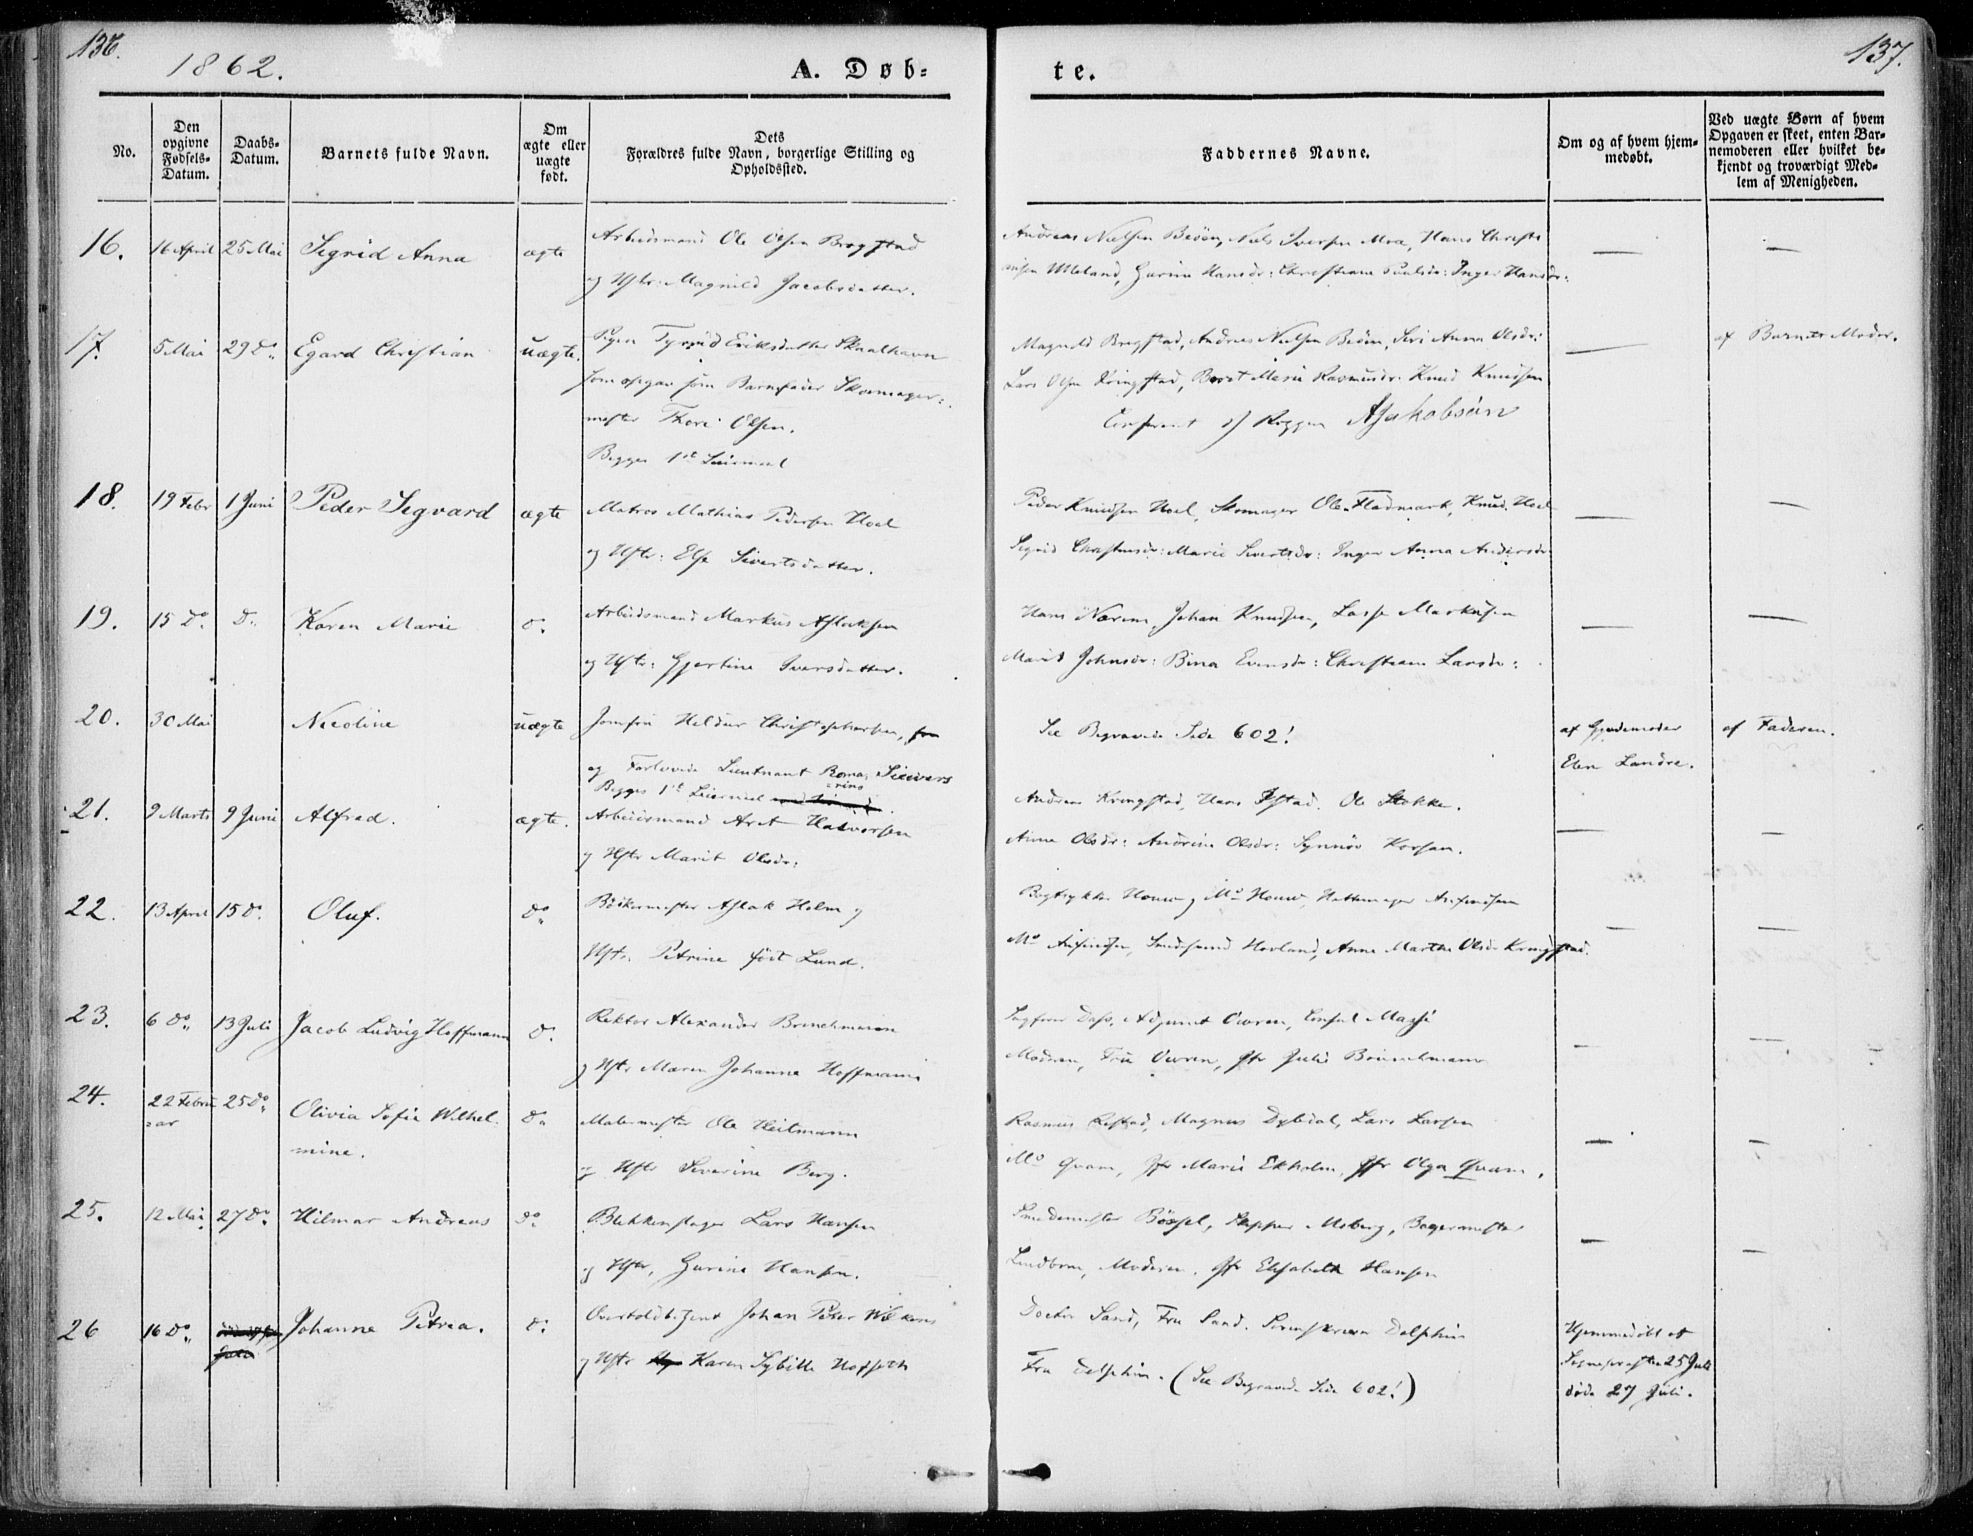 136.
1862.
A. Døb-
te.
137.
No.
Den
opgivne
Fødsels-
Datum.
Daabs-
Datum.
Barnets fulde Navn.
Om
ægte eller
uægte
født.
Dets
Forældres fulde Navn, borgerlige Stilling og
Opholdssted.
Faddernes Navne.
Om og af hvem hjem-
medøbt.
Ved uægte Børn af hvem
Opgaven er skeet, enten Bar-
nemoderen eller hvilket be-
kjendt og troværdigt Med-
lem af Menigheden.
16. 16 April 25 Mai Sigrid Anna ægte Arbeidsmand Ole Olsen Bragstad
og Hstr: Magnild Jacobsdatter.
Andreas Nielsen Niels Iversen Moe, Hans Christi
Hansdr: Christiane Paulsdr: Inger Hansdr:
—
—
17. 5 Mai 29 do Egard Christian uægte. Pigen Eriksdatter Skaalhavn
som opgav som Barnefader Skomager-
mester Thore Olsen.
Begges 1ste Leiermaal
Magnild Bragstad, Andreas Nielsen Siri Anna Olsdr:
Lars Olsen Kringstad, Beret Marie Rasmusdr: Knud Knudsen
Conferent AJakobsøn
—
af Barnets Moder.
18. 19 Febr 1 Juni Peder Segvard ægte Matros Mathias Pedersen Hoel
og Hstr: Else Sivertsdatter.
Peder Knudsen Hoel, Skomager Ole Fladmark, Knud Hoel
Sigrid Marie Sivertsdr: Inger Anna Andersdr
—
—
19. 15 do do Karen Marie do Arbeidsmand Markus Aslaksen
og Hstr: Gjertine Iversdatter.
Hans Johan Knudsen, Lasse Markusen
Marit Johnsdr: Bina Evensdr: Christiane Larsdr:
—
—
20. 30 Mai Nicoline uægte Jomfru Christophersen,
og Forlovede Lieutnant Roma- Sievers
rino
Begges 1ste Leiermaal
See Begravede Side 602!
af Gjordemoder
Elen Landre.
af Faderen.
21. 9 Marts 9 Juni Alfred. ægte. Arbeidsmand Aret Halvorsen
og Hstr Marit Olsdr:
Andreas Kringstad, Hans Ole Stokke.
Anne Olsdr: Andrine Olsdr: Synnøv Korsan.
—
—
22. 13 April 15 do Oluf. do Bødkermester Aslak Holm og
Hstr. Petrine født Lund.
Bogtrykker og Md Hattemager
Md Hovland, Anne Marthe Olsdr Kringstad.
—
—
23. 6 do 13 Juli Jacob Ludvig Hoffmann do Rektor Alexander Brinchmann
og Hstr Maren Johanne Hoffmann
Dass, Adjunct Owren, Consul
Moderen, Fru Owren, Jfr Julie Brinchmann
—
—
24. 22 Febru 25 do Olivia Sofie Wilhel- do Malermester Ole Heitmann
ar mine. og Hstr Severine Berg.
Rasmus Magnus Dybdal, Lars Larsen
Md Qvam, Jfr Marie Ekholm, Jfr Olga Qvam.
—
—
25. 12 Mai 27 do Hilmar Andreas do Blikkenslager Lars Hansen
og Hstr, Gurine Hansen.
Smedemester Skipper Moberg, Bagermester
Lindbom, Moderen. Jfr Elisabeth Hansen
—
—
26 16 do
Juli
Johanne Petrea. do Overtoldbetjent Johan Peter Wilkens
og Hstr Karen Sybille
Doctor Sand, Fru Sand. Sorenskriver Delphin
Fru Delphin. (See Begravede Side 602!)
Hjemmedøbt af
Sognepresten 25 Juli
døde 27 Juli.